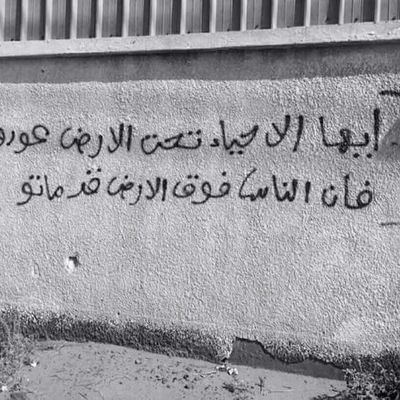 أيها الاحياء تحت الارض عودو
فأن الناس فوق الارض قد ماتو